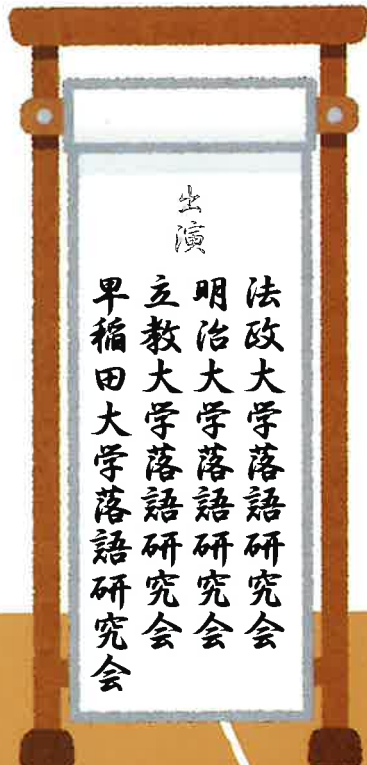 出演
法政大学落語研究会
明治大学落語研究会
立教大学落語研究会
早稲田大学落語研究会